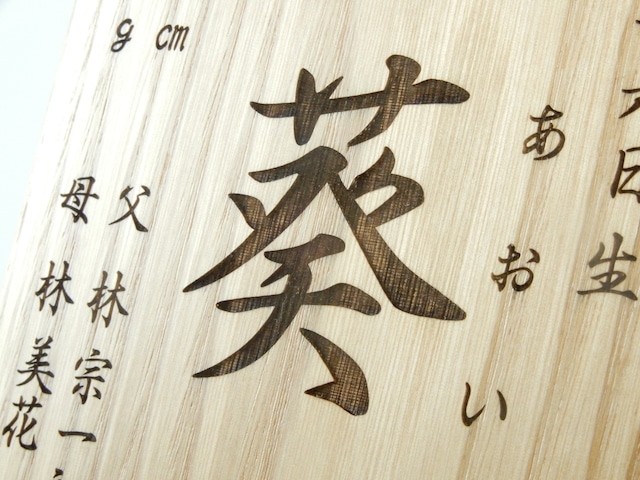 日
生
あおい
葵
cm
g
父 林 宗一
母 林 美花